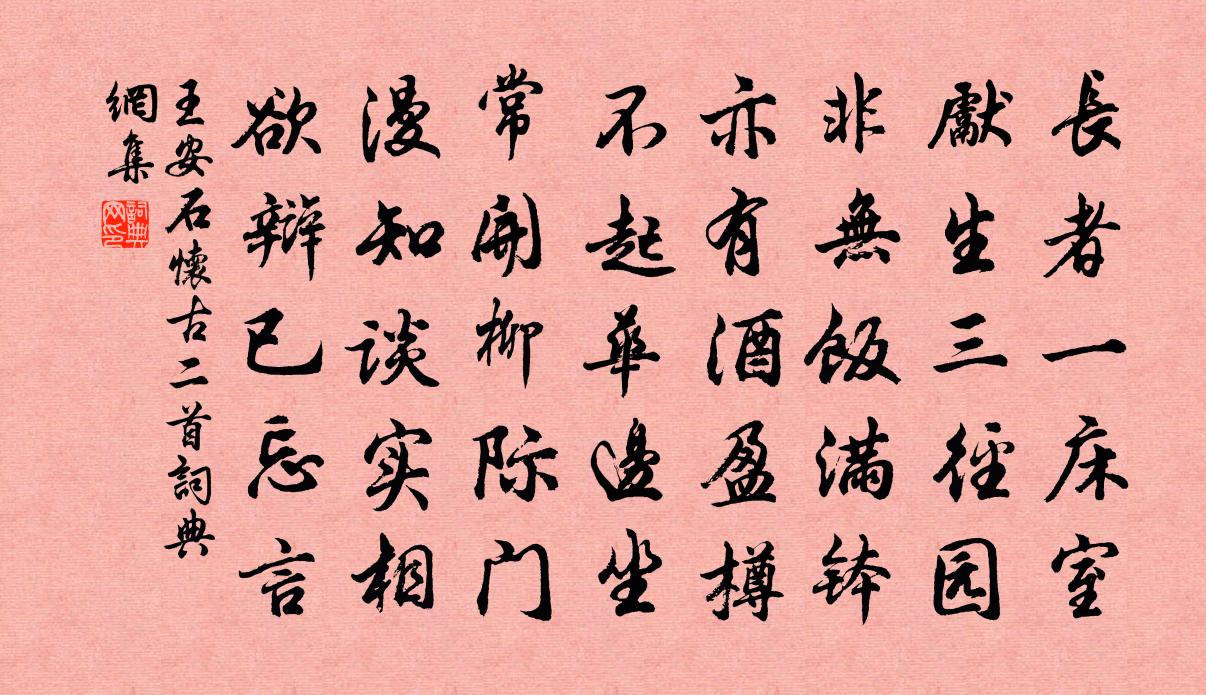 長者一床室
獻生三徑园
非無飯滿缽
亦有酒盈樽
不起華邊坐
常開柳际门
漫知談实相
欲辯已忘言
王安石懷古二首詞典
網集
詞典網印